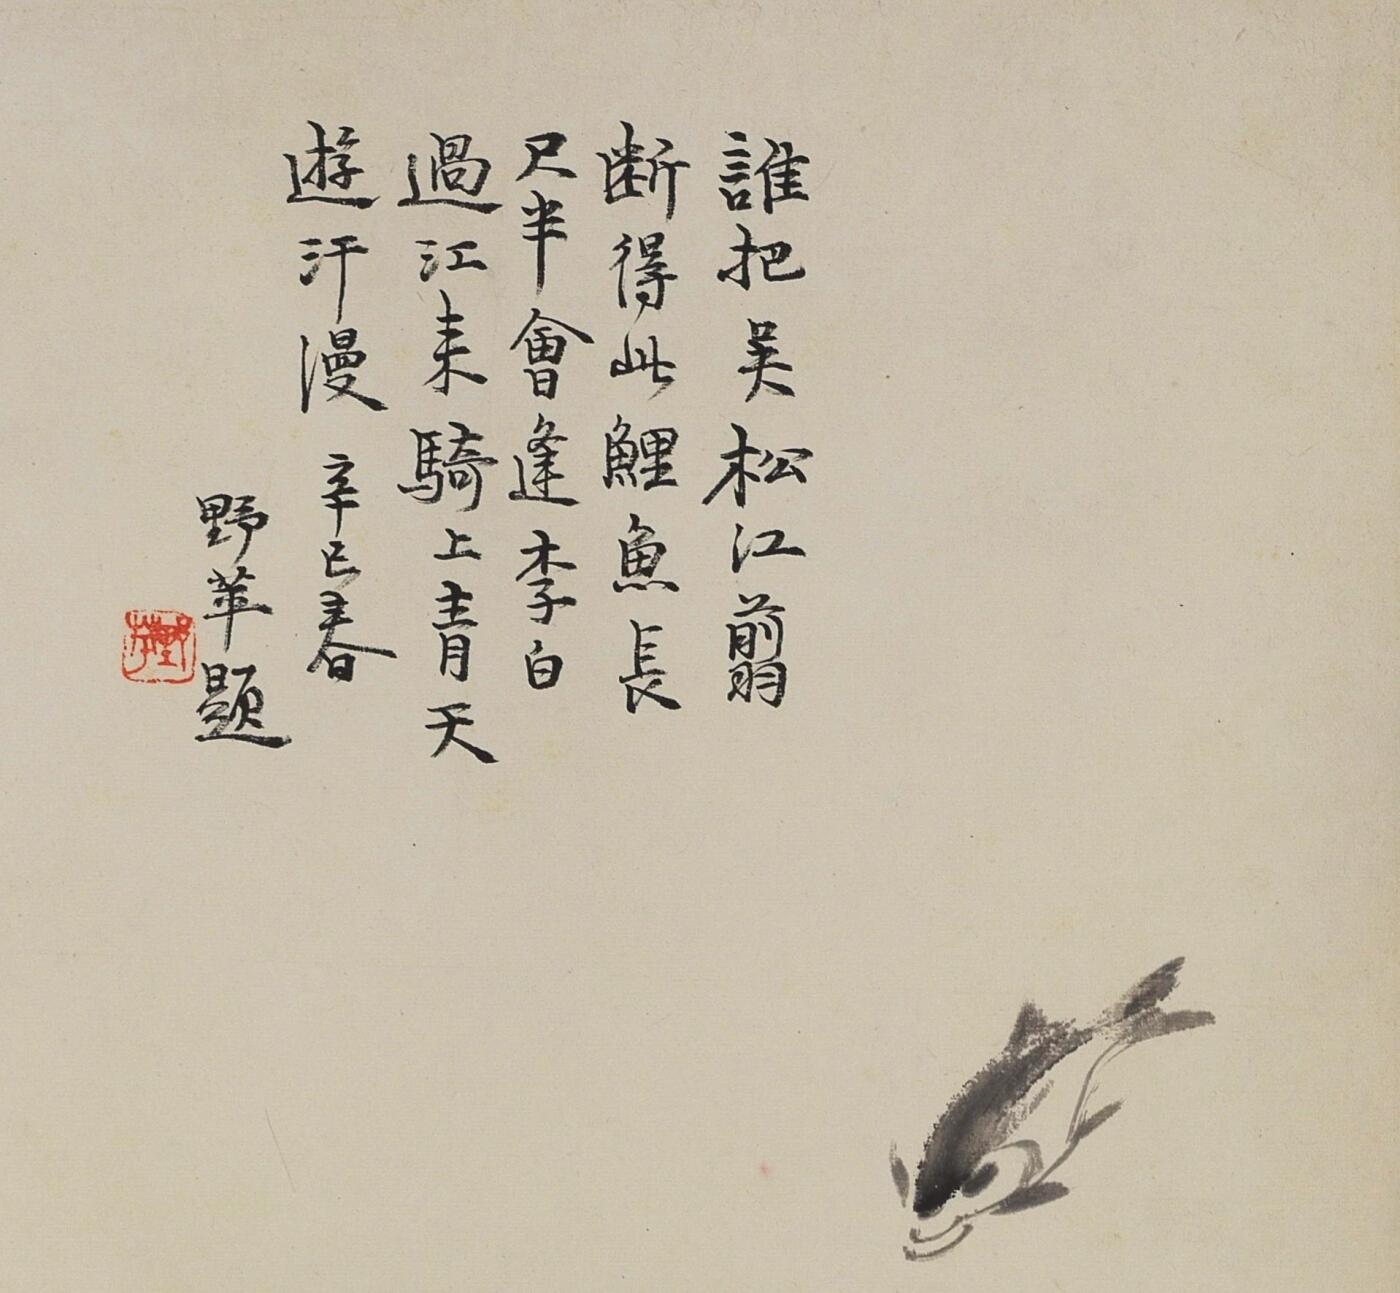 誰把吳松江翦
断得此鯉魚長
尺半會逢李白
過江来騎上青天
遊汗漫 辛巳春
野苹題